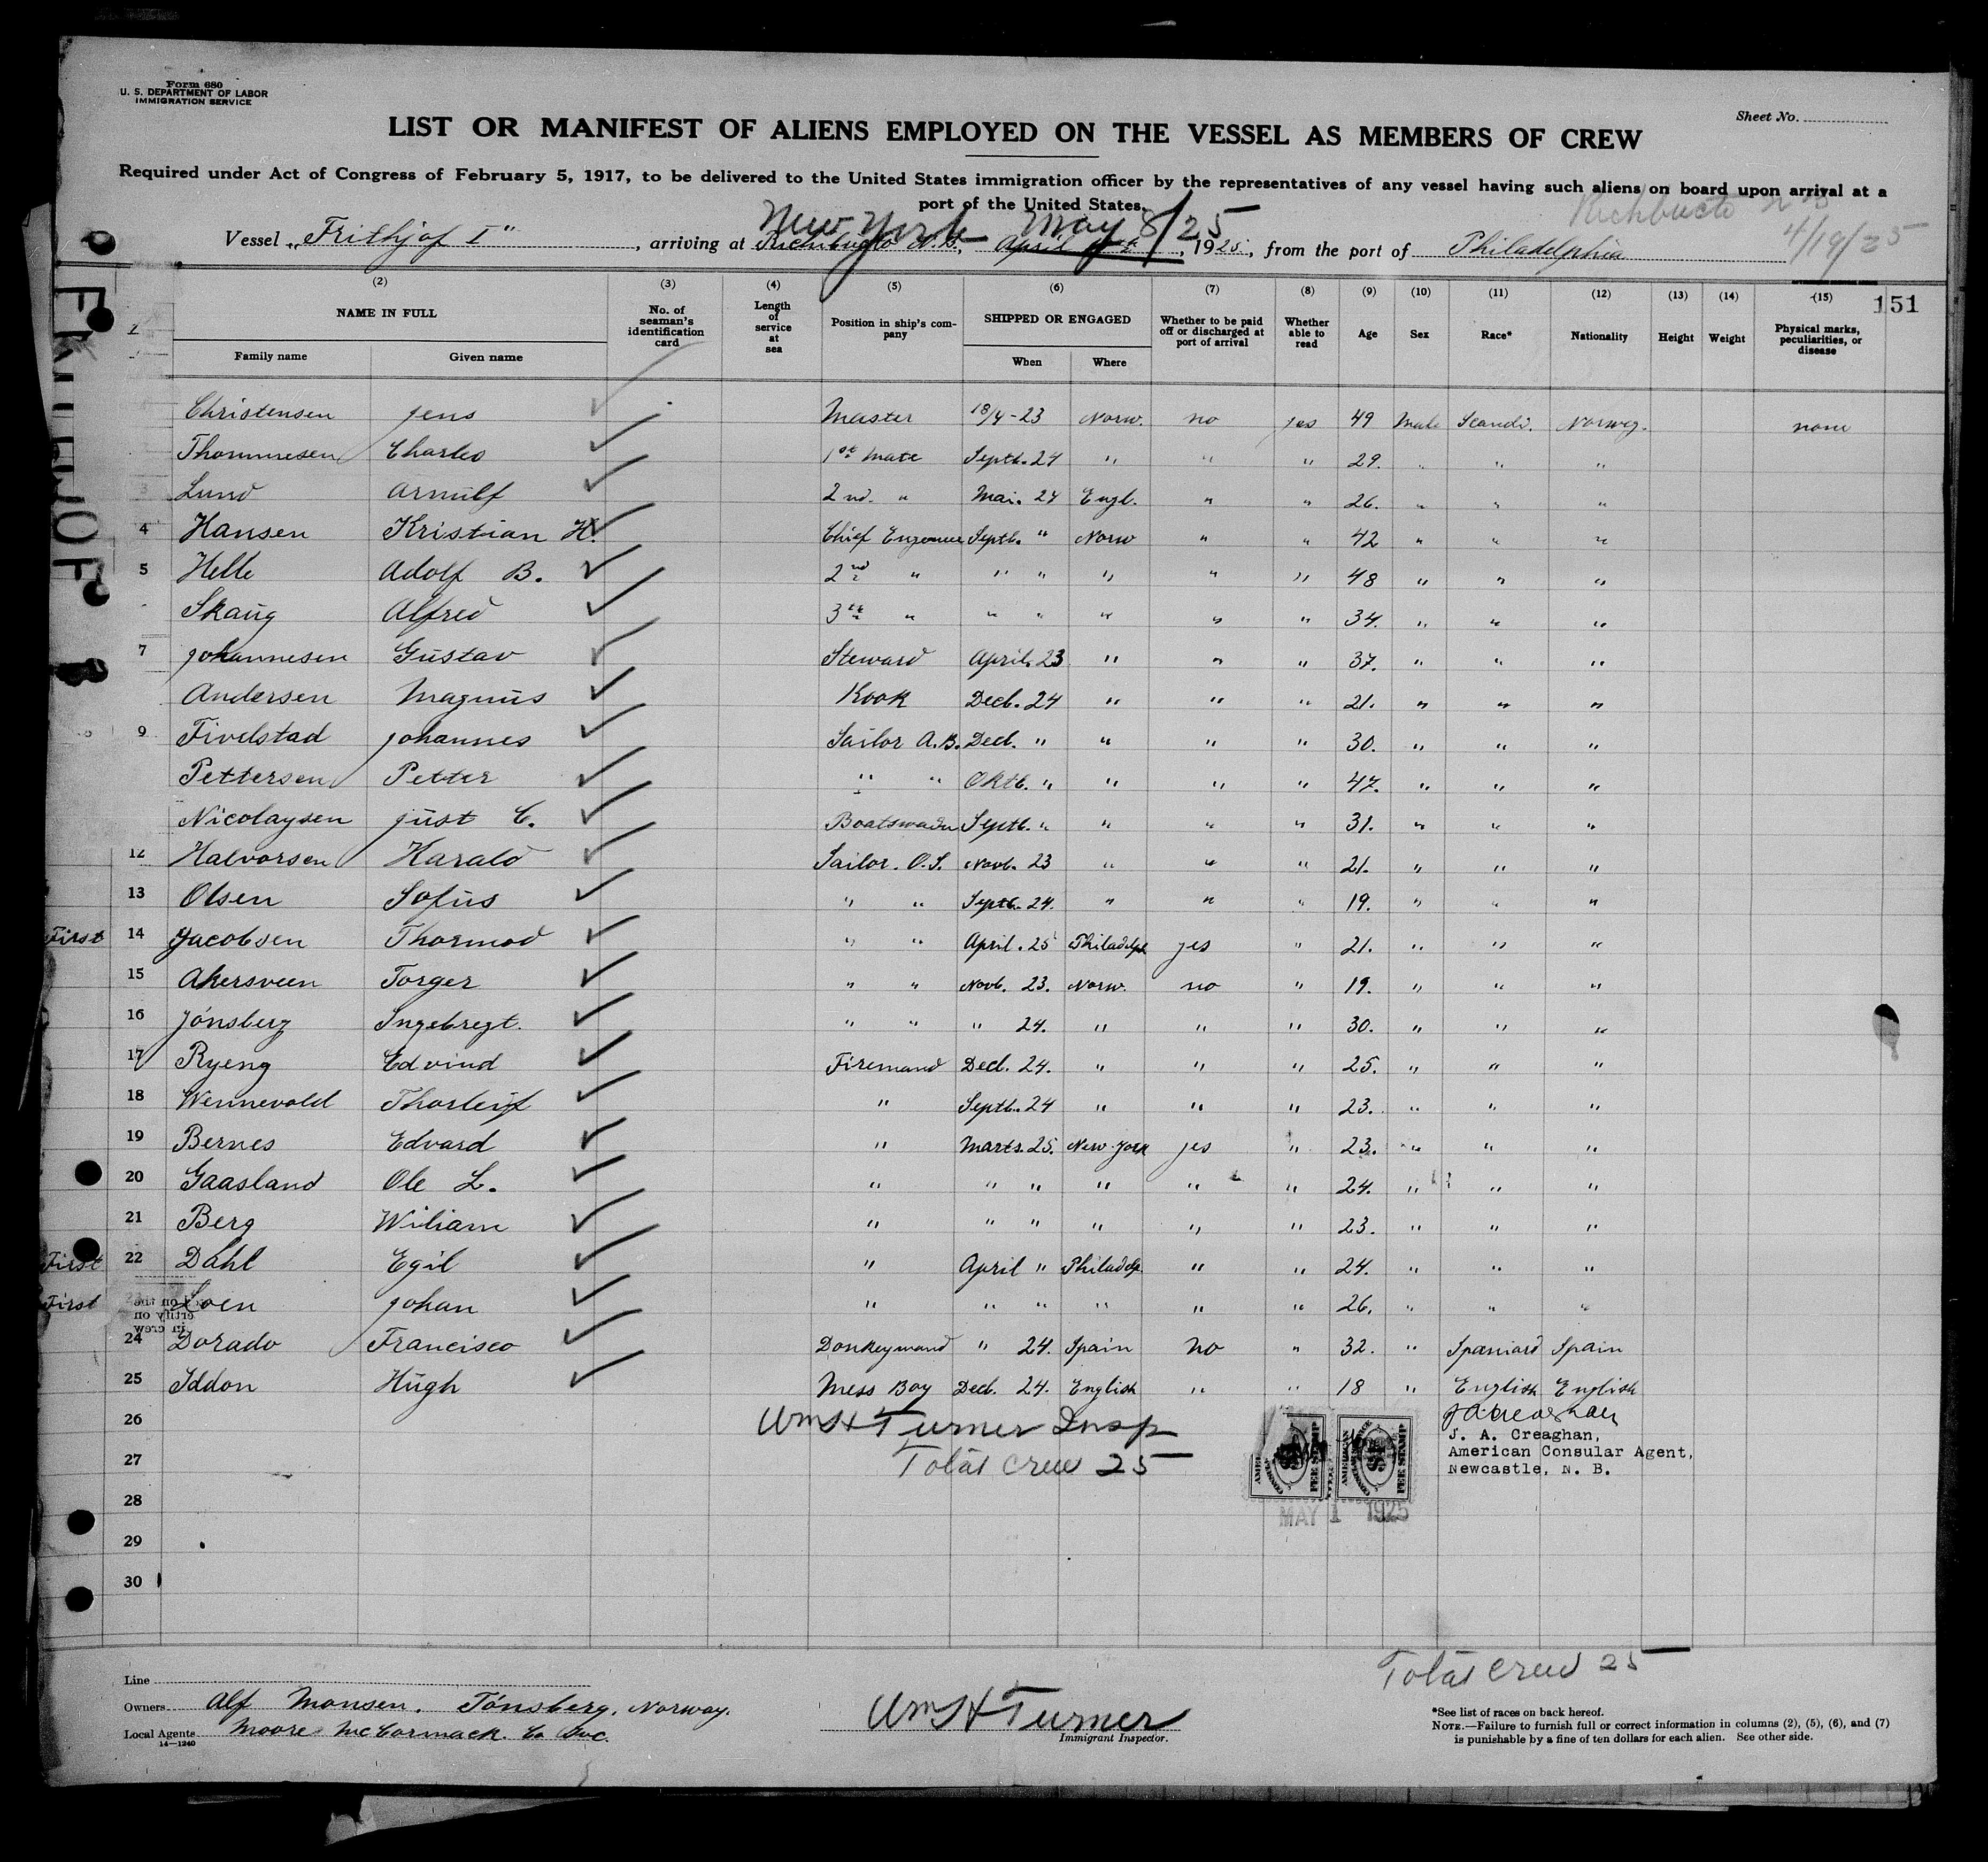 Form 680
U. S. DEPARTMENT OF LABOR
IMMIGRATION SERVICE
Sheet No.
LIST OR MANIFEST OF ALIENS EMPLOYED ON THE VESSEL AS MEMBERS OF CREW
Required under Act of Congress of February 5, 1917, to be delivered to the United States immigration officer by the representatives of any vessel having such aliens on board upon arrival at a
port of the United States.
New York May 8/25
Richibucto N.B.
4/19/25
Vessel „Frithjof I", arriving at Richibucto N.B., April, 1925, from the port of Philadelphia
151
(2) (3) (4) (5) (6) (7) (8) (9) (10) (11) (12) (13) (14) (15)
NAME IN FULL No. of seaman's identification card Length of service at sea Position in ship's company SHIPPED OR ENGAGED Whether to be paid off or discharged at port of arrival Whether able to read Age Sex Race* Nationality Height Weight Physical marks, peculiarities, or disease
Family name Given name When Where
Christensen Jens Master 18/4-23 Norw. no yes 49 Male Scandi. Norweg. none
Thommesen Charles 1st Mate Septb. 24 " " " 29. " " "
3 Lund Arnulf 2nd. " Mai. 24 Engl. " " 26. " " "
4 Hansen Kristian H. Chief Engeneer Septb. " Norw " " 42 " " "
5 Helle Adolf B. 2nd " " " " " " 48 " " "
Skaug Alfred 3th " " " " " " 34. " " "
7 Johannesen Gustav Steward April. 23 " " " 37. " " "
Andersen Magnus Kook Decb. 24 " " " 21. " " "
9 Fivelstad Johannes Sailor A.B. Decb. " " " " 30. " " "
Pettersen Petter " " Oktb. " " " " 47. " " "
Nicolaysen Just C. Boatswadn Septb. " " " " 31. " " "
12 Halvorsen Harald Sailor. O.S. Novb. 23 " " " 21. " " "
13 Olsen Sofus " " Septb. 24. " " " 19. " " "
First 14 Jacobsen Thormod " " April. 25 Philadelph yes " 21. " " "
15 Akersveen Torger " " Novb. 23. Norw. no " 19. " " "
16 Jónsberg Ingebregt. " " " 24. " " " 30. " " "
17 Ryeng Edvind Firemand Decb. 24. " " " 25. " " "
18 Wennevold Thorleif " Septb. 24 " " " 23. " " "
19 Bernes Edvard " Marts. 25. New-York yes " 23. " " "
20 Gaasland Ole L. " " " " " " 24. " " "
21 Berg Wiliam " " " " " " 23. " " "
First 22 Dahl Egil " April " Philadelp. " " 24. " " "
First Loen Johan " " " " " " 26. " " "
24 Dorado Francisco Donkeymand " 24. Spain no " 32. " Spaniard Spain
25 Iddon Hugh Mess Boy Decb. 24. English " " 18 " English English
26 Wm H Turner Insp JACreaghan
J. A. Creaghan,
American Consular Agent,
Newcastle, N. B.
27 Total Crew 25
MAY 1 1925
28
29
30
Total Crew 25
Line
Owners Alf Monsen. Tónsberg, Norway.
Local Agents Moore McCormack Co Inc.
14—1240
Wm H Turner
Immigrant Inspector.
*See list of races on back hereof.
NOTE.—Failure to furnish full or correct information in columns (2), (5), (6), and (7)
is punishable by a fine of ten dollars for each alien. See other side.